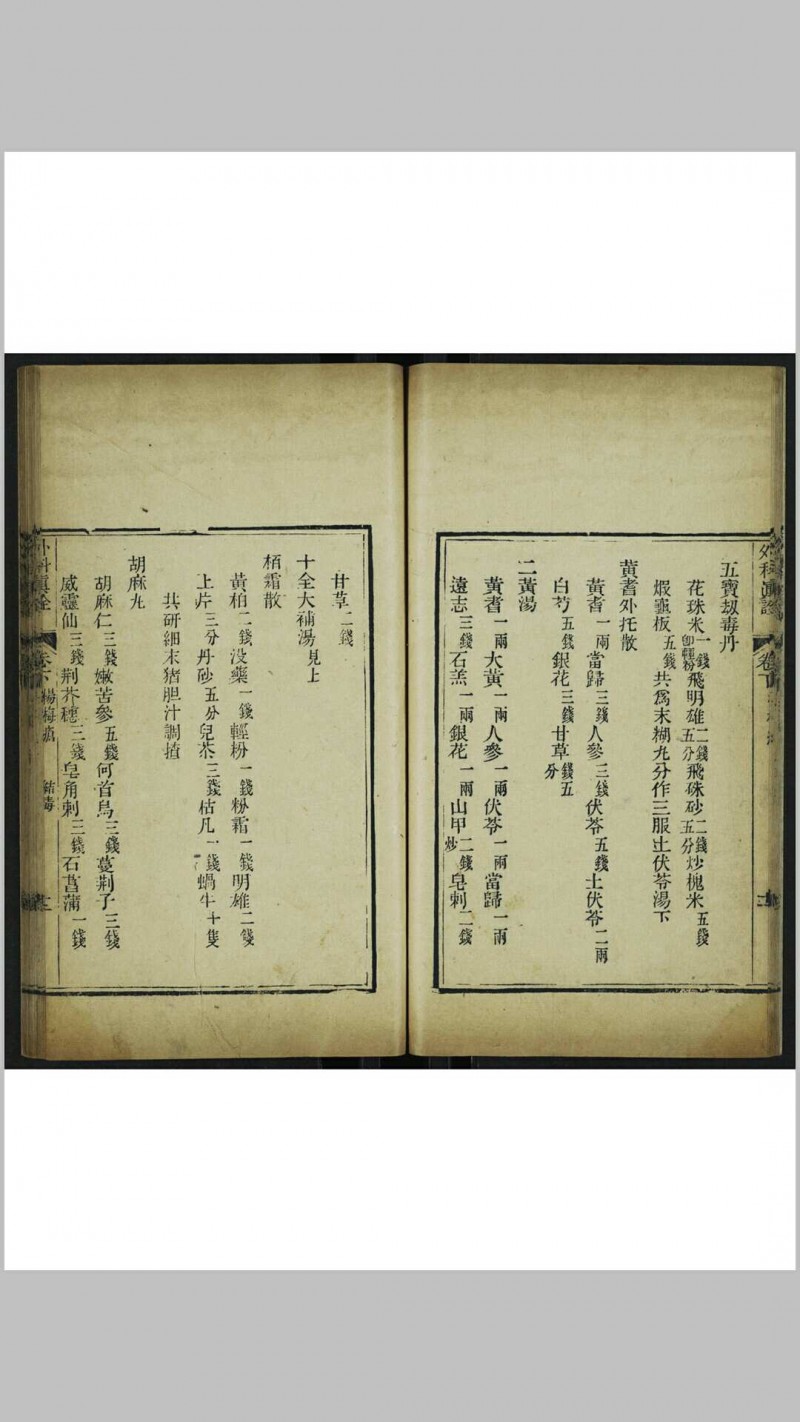 五寶刼毒丹
花珠米一錢即輕粉飛明雄二錢五分飛硃砂二錢五分炒槐米五錢
蝦龜板五錢共爲末糊九分作三服土伏苓湯下
黃耆外托散
黃耆一兩當歸三錢人參三錢伏苓五錢土伏苓二兩
白芍五錢銀花三錢甘草錢五分
二黃湯
黃耆一兩大黃一兩人參一兩伏苓一兩當歸一兩
遠志三錢石羔一兩銀花一兩山甲二錢炒皂刺二錢
甘草二錢
十全大補湯見上
栢霜散
黃柏二錢没藥一錢輕粉一錢粉霜一錢明雄二錢
上片三分丹砂五分兒茶三錢枯凡一錢蝸牛十隻
共研細末猪胆汁調揸
胡麻九
胡麻仁三錢嫩苦參五錢何首烏三錢蔓荆子三錢
威靈仙三錢荆芥穗三錢皂角刺三錢石菖蒲一錢
外科眞詮
卷下
楊梅瘡
結毒